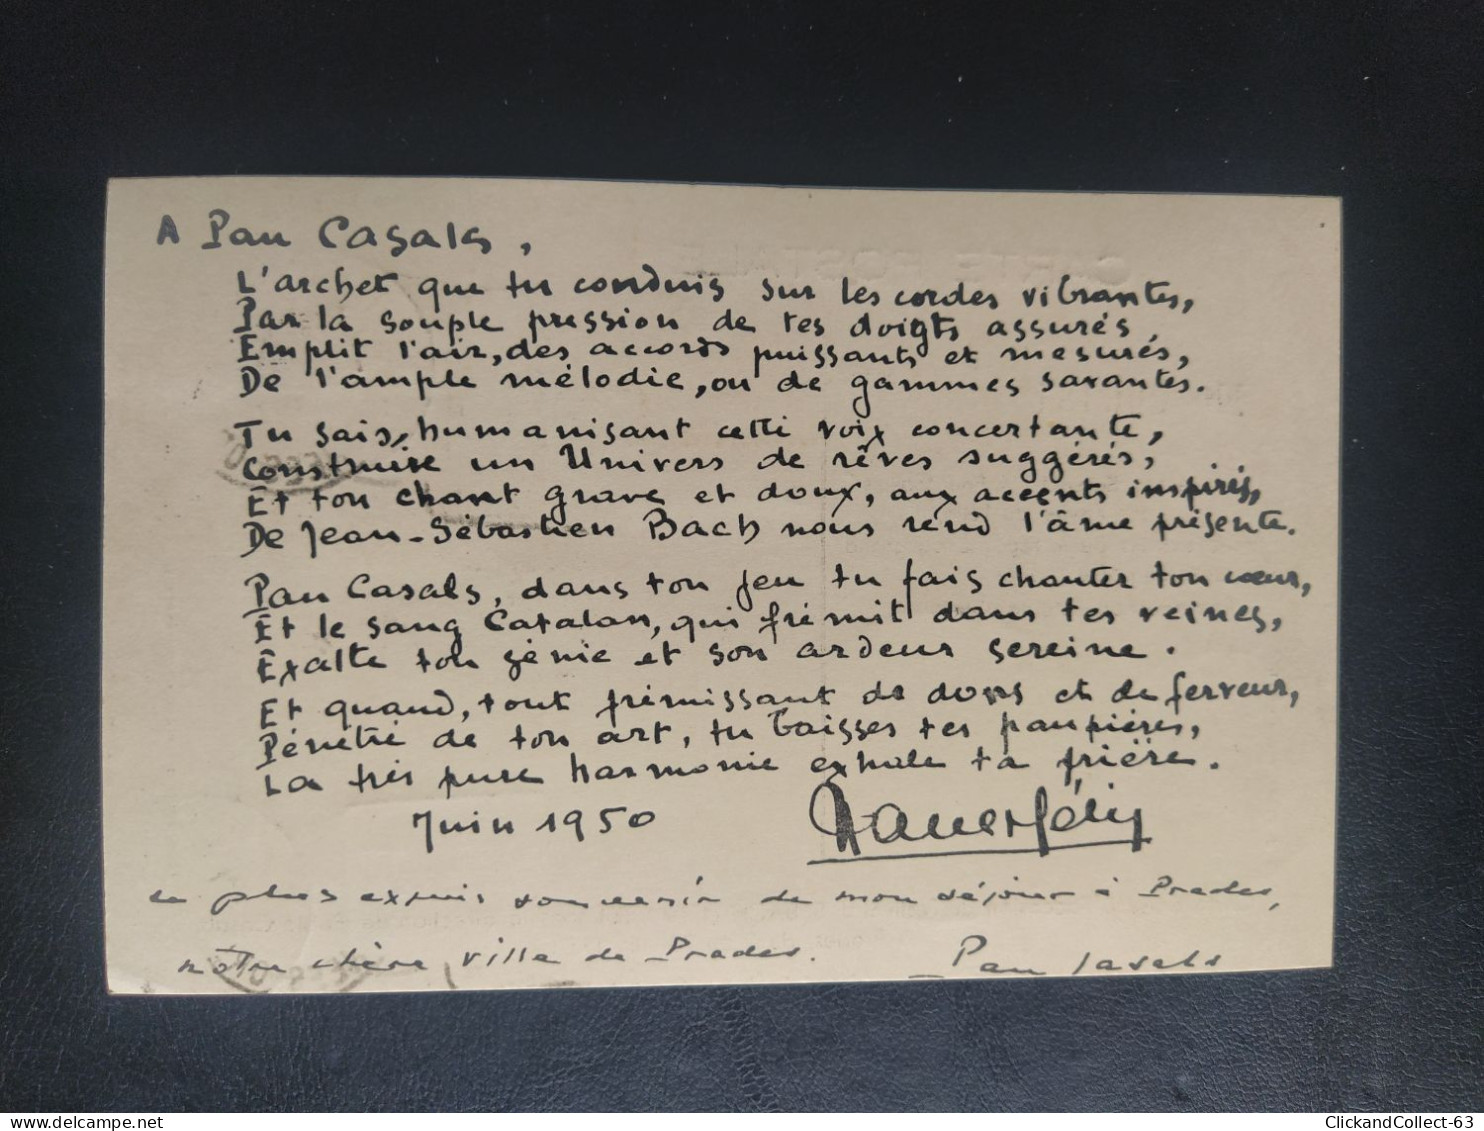 A Pau Casals,
L'archet que tu conduis sur les cordes vibrantes,
Par la souple pression de tes doigts assurés,
Emplit l'air, des accords puissants et mesurés,
De l'ample mélodie, ou de gammes savantes.
Tu sais, humanisant cette voix concertante,
Construire un Univers de rêves suggérés,
Et ton chant grave et doux, aux accents inspirés,
De Jean-Sébastien Bach nous rend l'âme présente.
Pau Casals, dans ton jeu tu fais chanter ton cœur,
Et le sang Catalan, qui frémit dans tes veines,
Exalte ton génie et son ardeur sereine.
Et quand, tout frémissant de dons et de ferveur,
Pénétré de ton art, tu baisses tes paupières,
La très pure harmonie exhale ta prière.
Juin 1950
plus exquis souvenir de mon séjour à Prades,
notre chère ville de Prades. Pau Casals
CARTE POSTALE
ClickandCollect-63
© delcampe.net